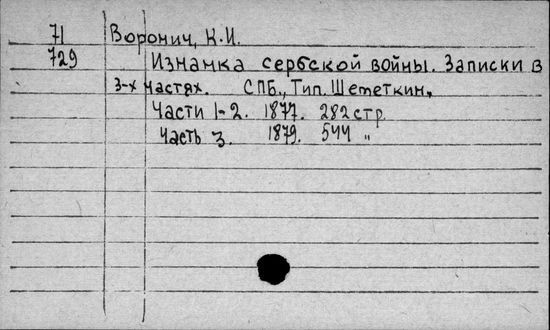 71 Воронич, К.И.
729 Изнанка сербской войны. Записки в
3-х частях. СПБ., Тип. Шететкин,
Части 1-2. 1877. 282 стр.
Часть 3. 1879. 544 "